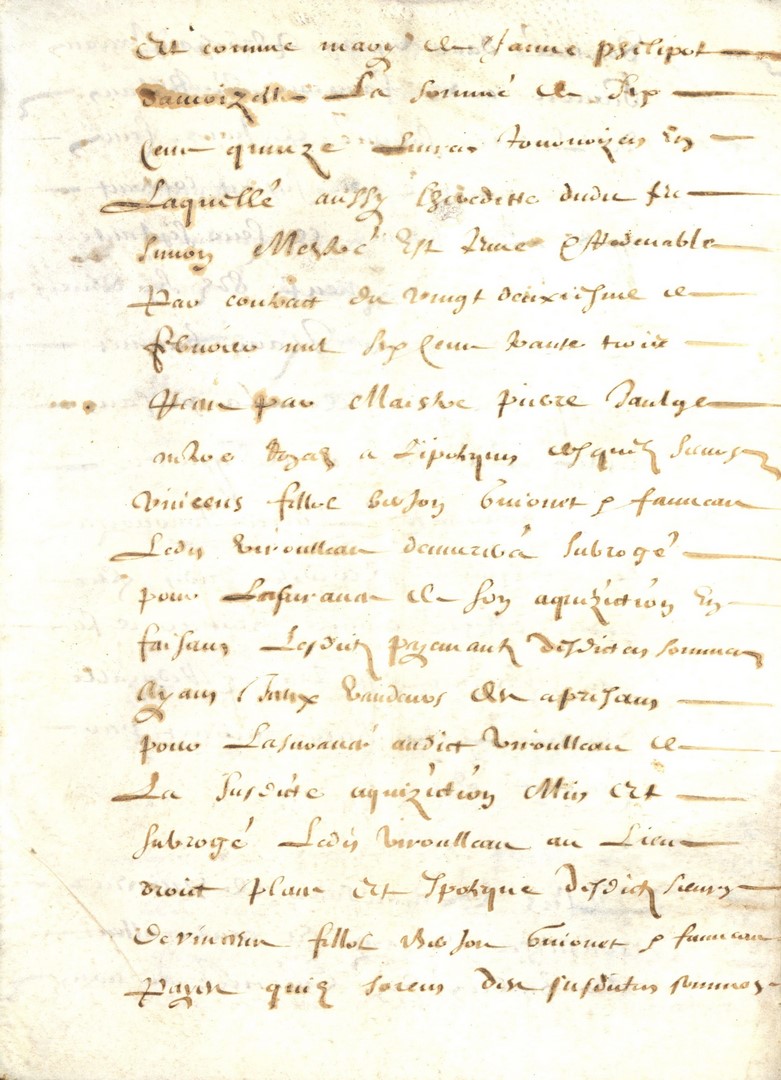 Et comme mary de Janne philipot
damoizelle La somme de six
cent quinze Livres tournoizes En
Laquelle aussy Lhereditte dudit feu
Simon Est tenue Et Redevable
Par contract du vingt deuxiesme de
febvrier mil six cent trante trois
Item par Maistre pierre
a Lipotques desquelz sieurs
Vincens fillol Guionet & fauveau
Ledit Viroulleau demurera subrogé
pour Lasurance de son aquizition En
faisant Lesdictz payemantz desdictes sommes
Ayans vandeurs des a presant
pour Lasurance audict Viroulleau de
La susdicte aquizition Mis Et
subrogé Ledit Viroulleau au Lieu
droict place Et Ipotque desdictz sieurs
De vincens fillol Guionet & fauveau
Payer quilz seront des susdittes sommes